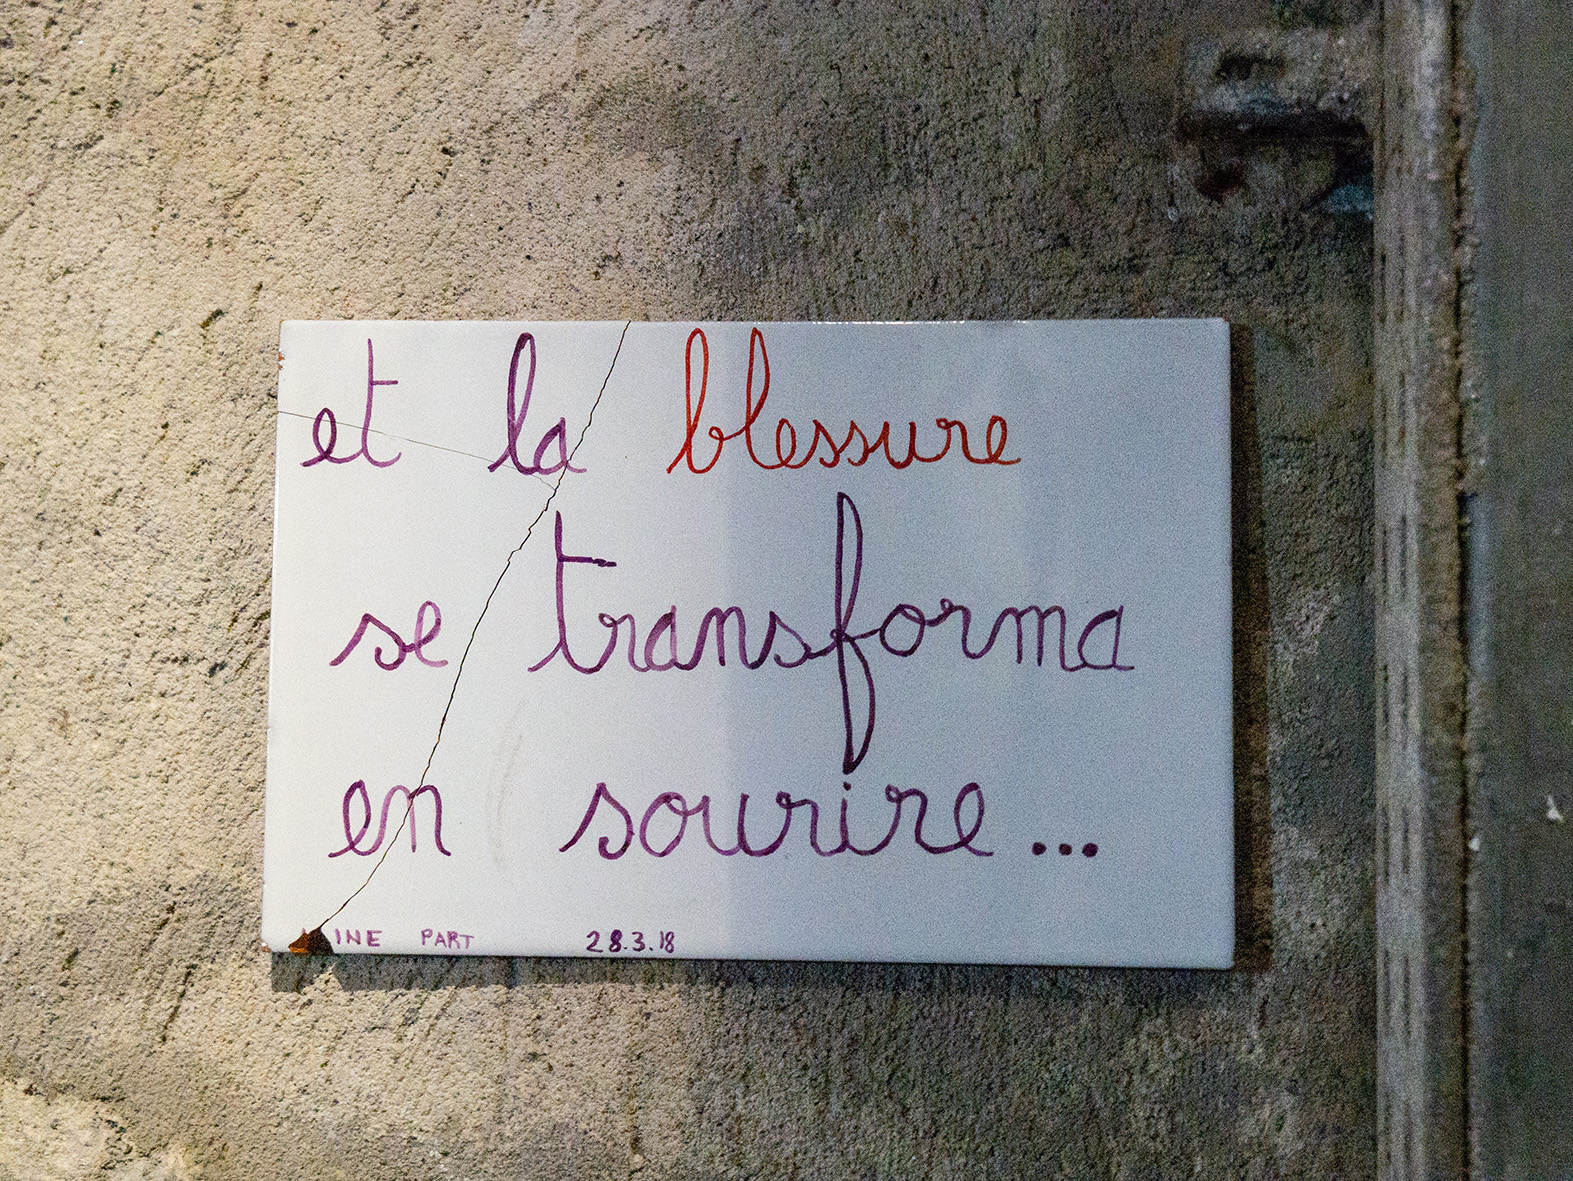 et la blessure
se transforma
en sourire...
INE PART 28.3.18